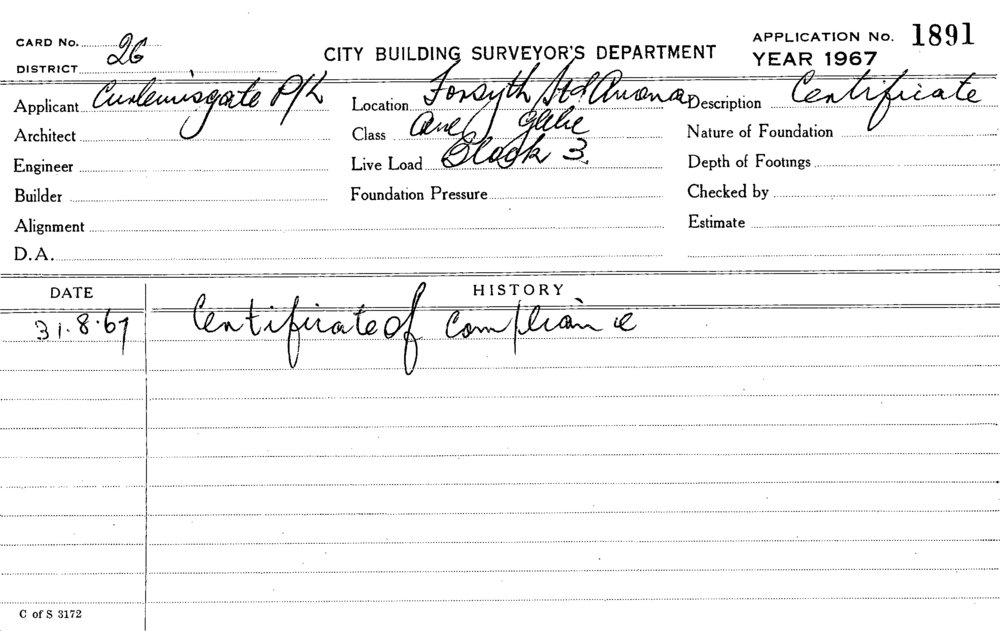 CARD No. 26
DISTRICT
CITY BUILDING SURVEYOR'S DEPARTMENT
APPLICATION No. 1891
YEAR 1967
Applicant P/L
Location Forsyth St &
Description Certificate
Architect
Class Ave Glebe
Nature of Foundation
Engineer
Live Load Block 3
Depth of Footings
Builder
Foundation Pressure
Checked by
Alignment
Estimate
D.A.
DATE HISTORY
31.8.67 Certificate of compliance
C of S 3172